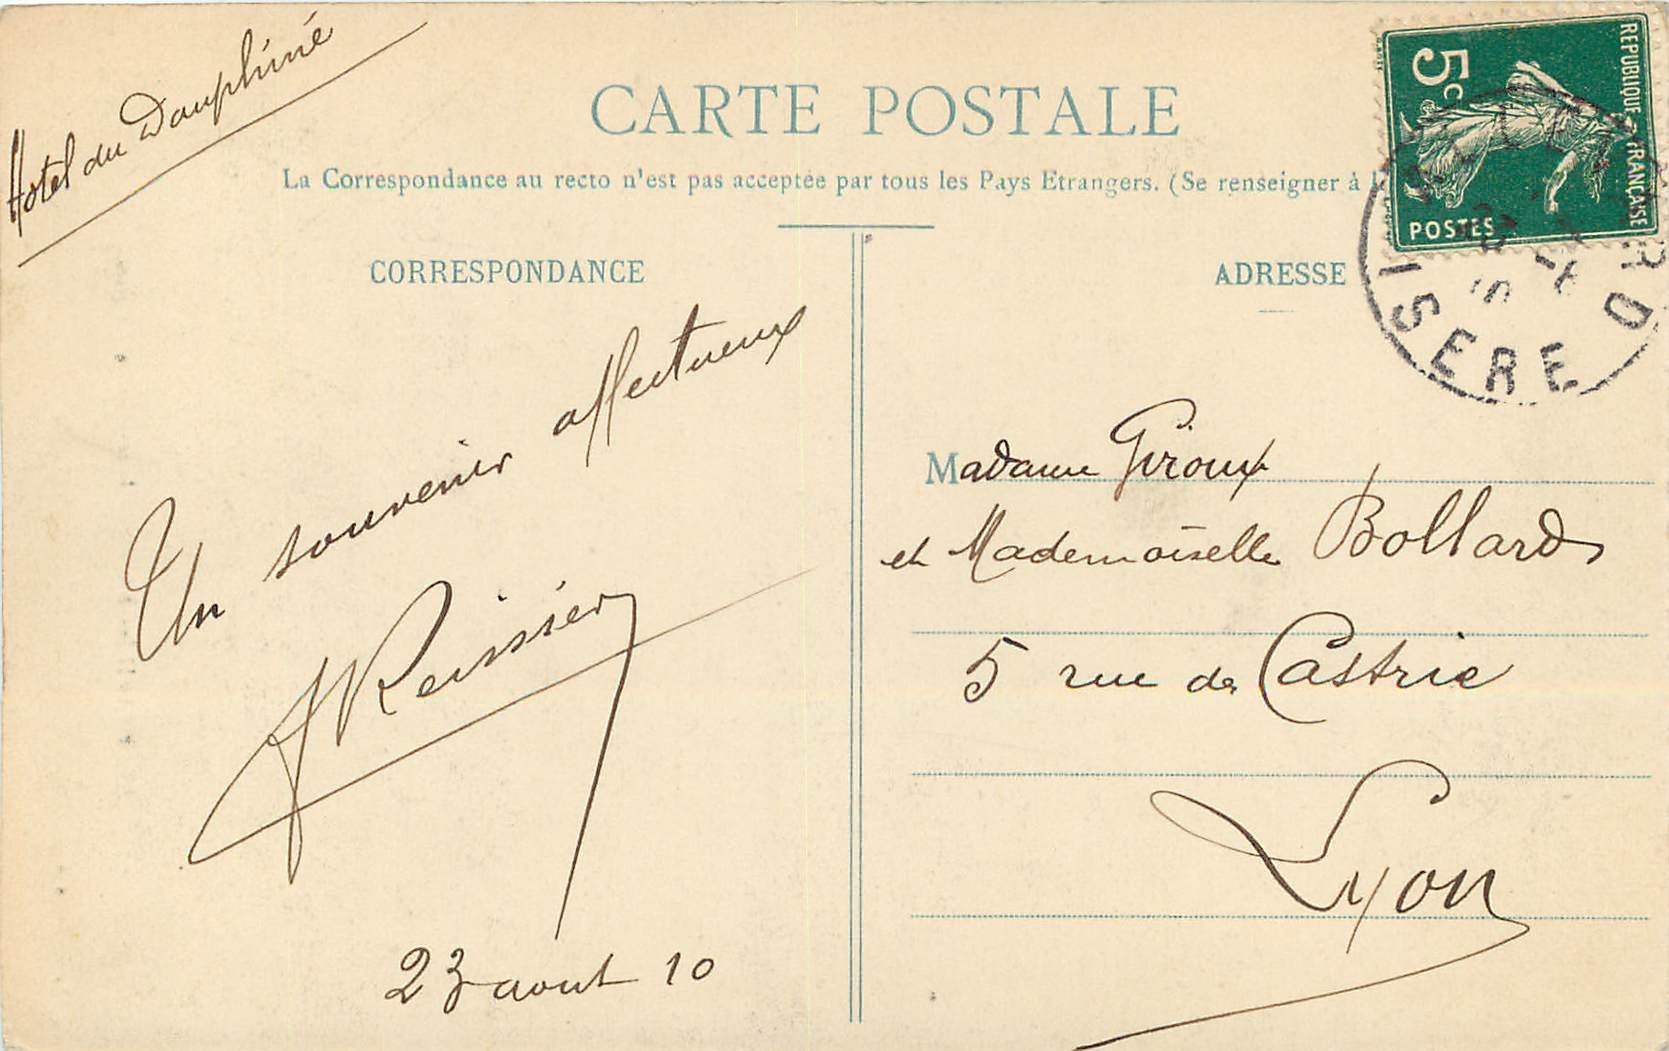 Hotel du Dauphiné
CARTE POSTALE
La Correspondance au recto n'est pas acceptée par tous les Pays Etrangers. (Se renseigner à l
CORRESPONDANCE
Un souvenir affectueux
Reissier
23 aout 10
ADRESSE
5c
REPUBLIQUE FRANÇAISE
POSTES
ISERE
Madame Giroux
et Mademoiselle Bollard
5 rue de Castrie
Lyon